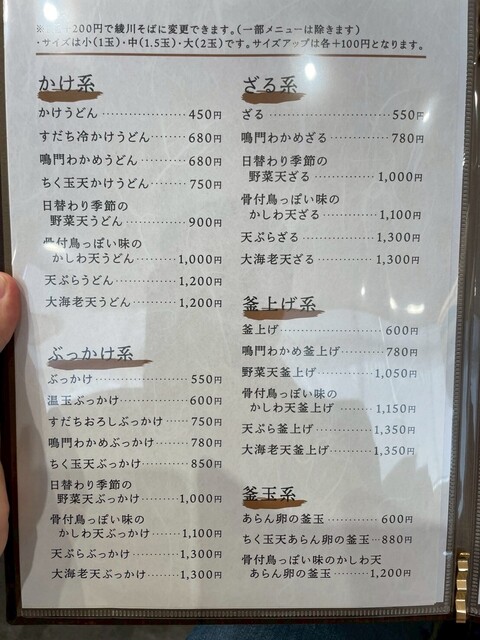 +200円で綾川そばに変更できます。(一部メニューは除きます)
・サイズは小(1玉)・中(1.5玉)・大(2玉)です。サイズアップは各+100円となります。
かけ系
かけうどん 450円
すだち冷かけうどん 680円
鳴門わかめうどん 680円
ちく玉天かけうどん 750円
日替わり季節の
野菜天うどん 900円
骨付鳥っぽい味の
かしわ天うどん 1,000円
天ぷらうどん 1,200円
大海老天うどん 1,200円
ぶっかけ系
ぶっかけ 550円
温玉ぶっかけ 600円
すだちおろしぶっかけ 750円
鳴門わかめぶっかけ 780円
ちく玉天ぶっかけ 850円
日替わり季節の
野菜天ぶっかけ 1,000円
骨付鳥っぽい味の
かしわ天ぶっかけ 1,100円
天ぷらぶっかけ 1,300円
大海老天ぶっかけ 1,300円
ざる系
ざる 550円
鳴門わかめざる 780円
日替わり季節の
野菜天ざる 1,000円
骨付鳥っぽい味の
かしわ天ざる 1,100円
天ぷらざる 1,300円
大海老天ざる 1,300円
釜上げ系
釜上げ 600円
鳴門わかめ釜上げ 780円
野菜天釜上げ 1,050円
骨付鳥っぽい味の
かしわ天釜上げ 1,150円
天ぷら釜上げ 1,350円
大海老天釜上げ 1,350円
釜玉系
あらん卵の釜玉 600円
ちく玉天あらん卵の釜玉 880円
骨付鳥っぽい味のかしわ天
あらん卵の釜玉 1,200円